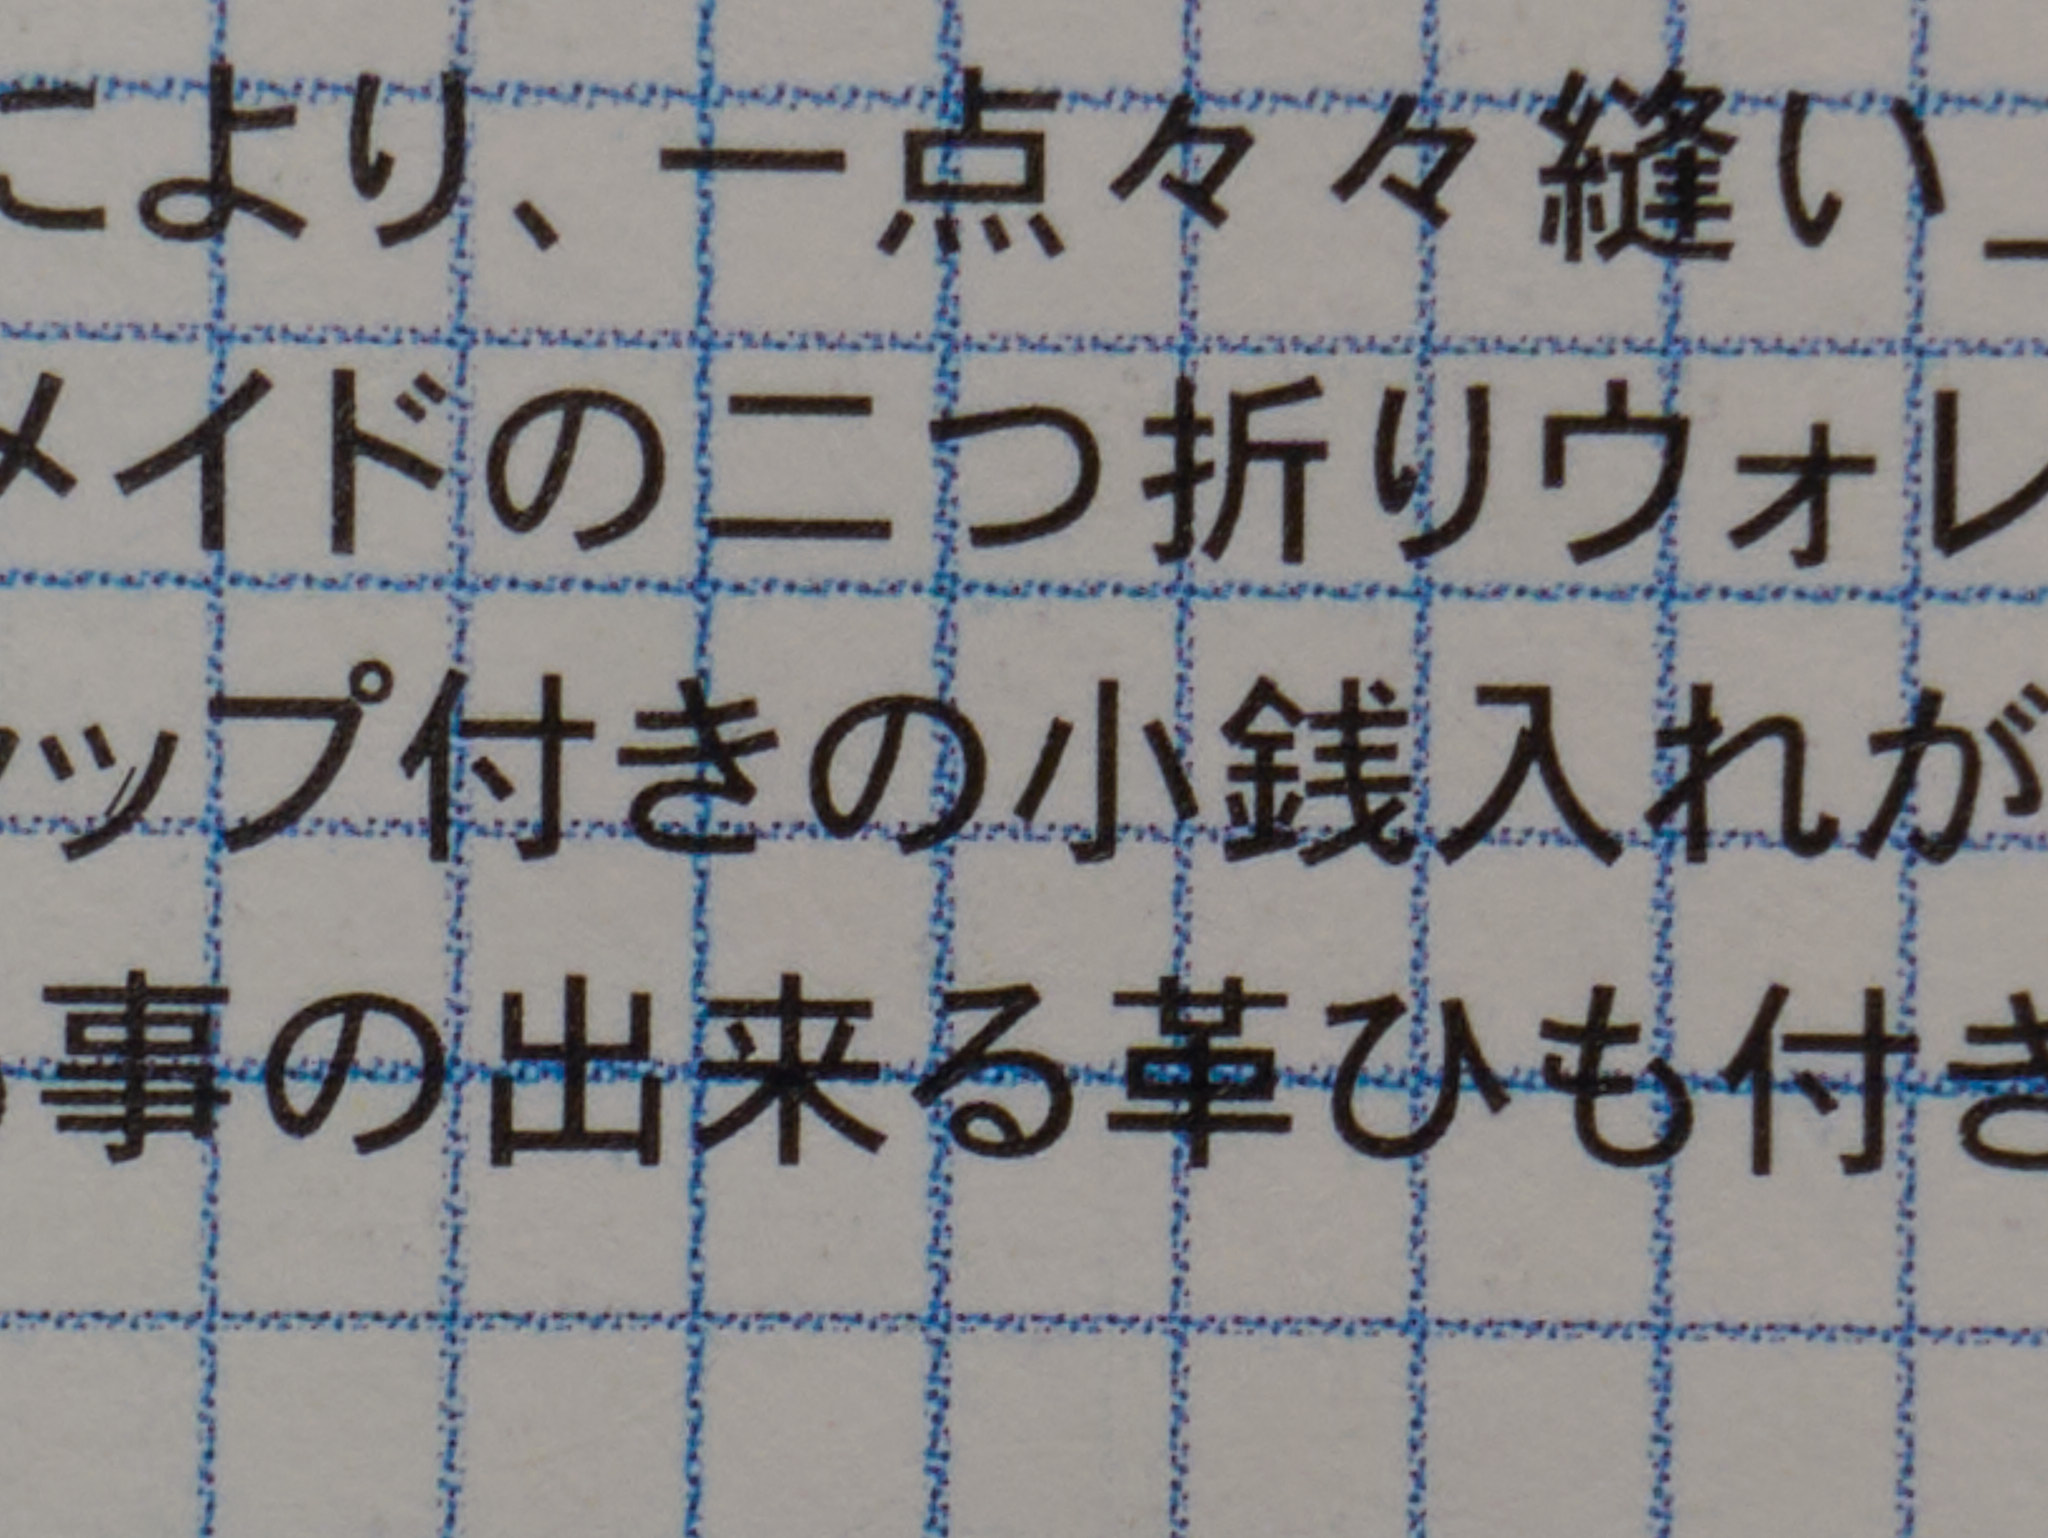 により、一点々々縫い
メイドの二つ折りウォレ
ップ付きの小銭入れが
事の出来る革ひも付き